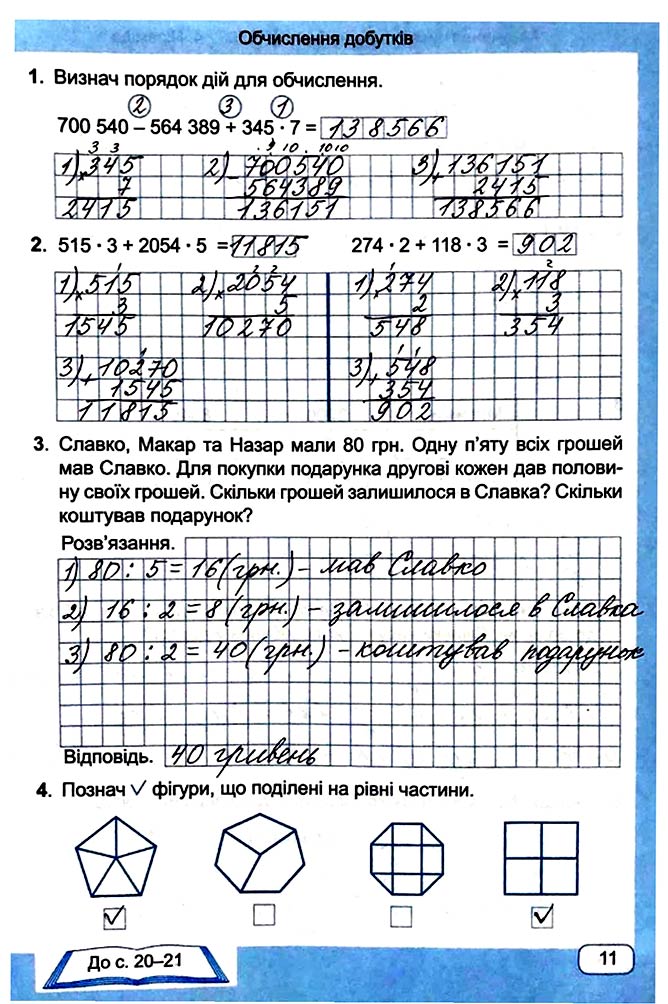 Обчислення добутків
1. Визнач порядок дій для обчислення.
2 3 1
700 540 – 564 389 + 345 · 7 = 138566
3 3 · 9 10 · 10 10
1) 345 2) 700540 3) 136151
× 7 – 564389 + 2415
2415 136151 138566
2. 515 · 3 + 2054 · 5 = 11815 274 · 2 + 118 · 3 = 902
1 2 2 1 2
1) × 515 2) × 2054 1) × 274 2) × 118
3 5 2 3
1545 10270 548 354
1 1 1
3) + 10270 3) + 548
1545 354
11815 902
3. Славко, Макар та Назар мали 80 грн. Одну п’яту всіх грошей
мав Славко. Для покупки подарунка другові кожен дав полови-
ну своїх грошей. Скільки грошей залишилося в Славка? Скільки
коштував подарунок?
Розв’язання.
1) 80 : 5 = 16 (грн.) – мав Славко
2) 16 : 2 = 8 (грн.) – залишилося в Славка
3) 80 : 2 = 40 (грн.) – коштував подарунок
Відповідь. 40 гривень
4. Познач √ фігури, що поділені на рівні частини.
До с. 20–21
11